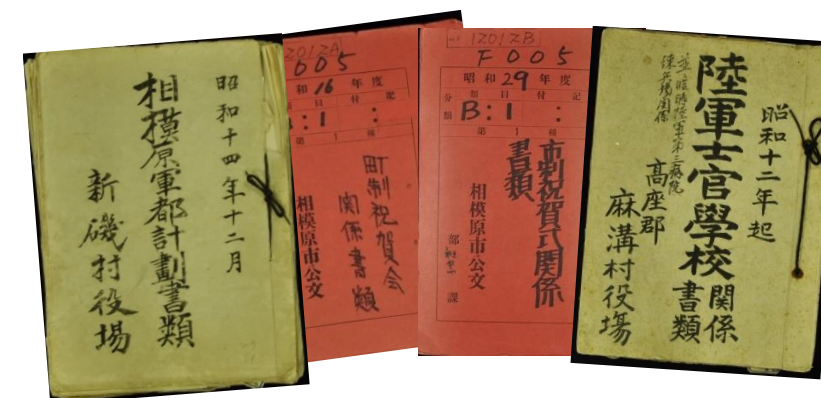 昭和十四年十二月
相模原軍都計劃書類
新磯村役場
1201ZA
005
昭和16年度
類目付記
:1 :
第1種
町制祝賀会
関係書類
相模原市公文
1201ZB
F005
昭和29年度
分類 類目付記
B:1 :
第1種
市制祝賀式関係
書類
相模原市公文
部 課
昭和十二年起
陸軍士官學校関係書類
並ニ臨時陸軍第三病院
練兵場関係
高座郡
麻溝村役場